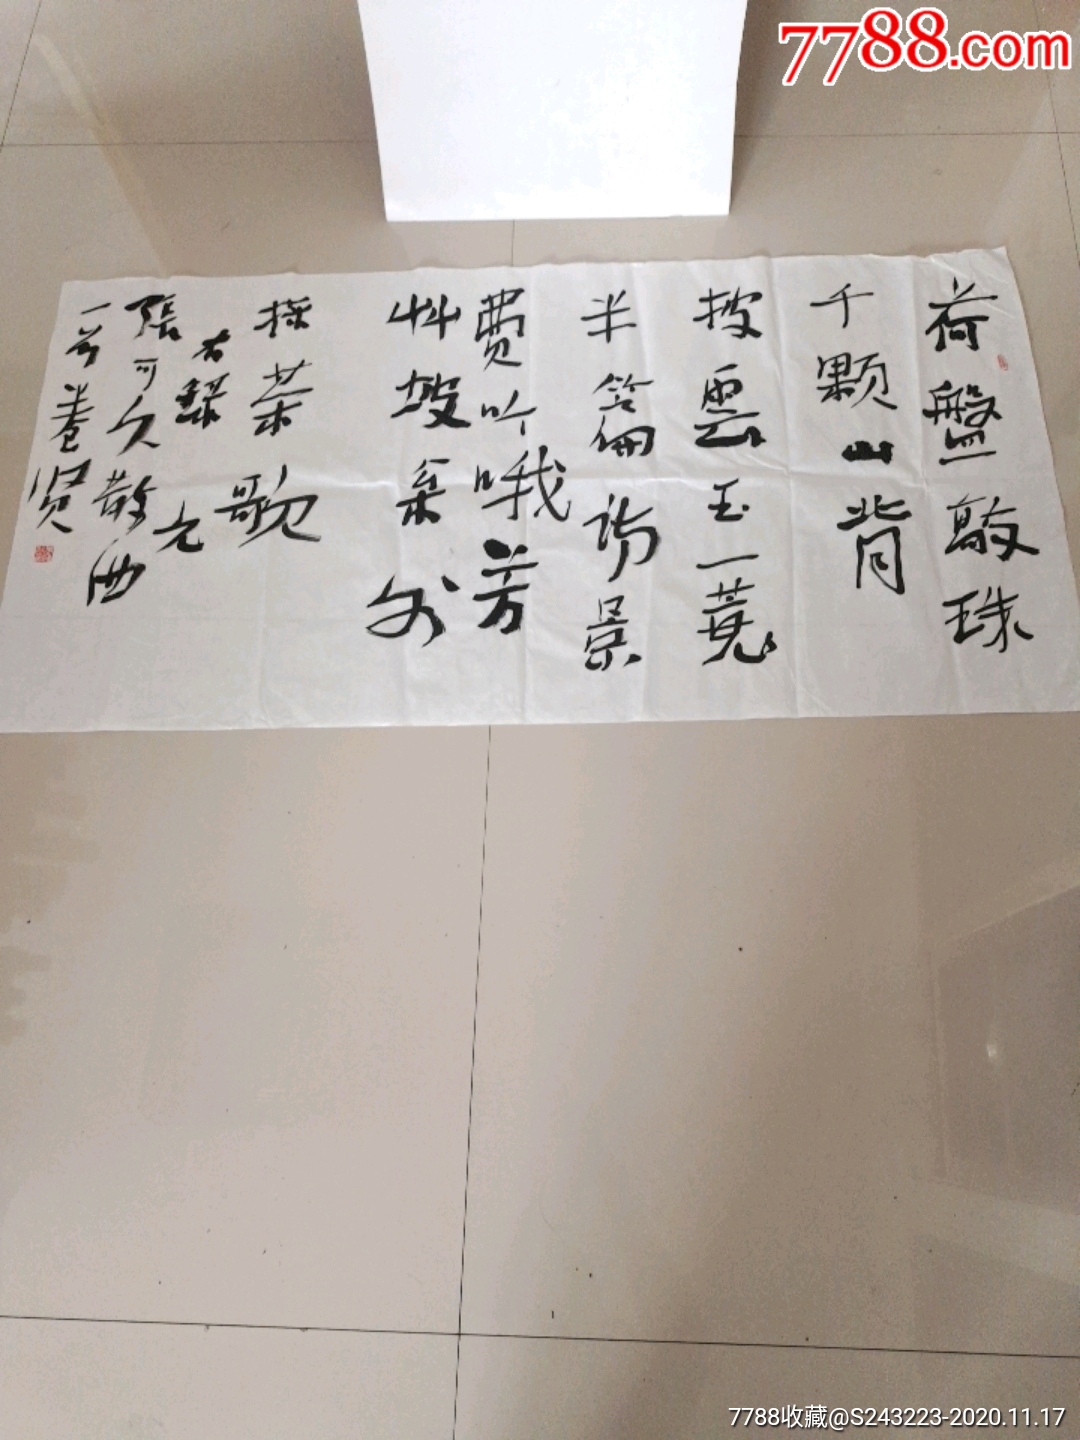 7788.com
荷盤敲珠
千颗山背
披雲玉一蓑
半篇诗景
费吟哦芳
艸坡桒外
採茶歌
右録元
張可久散曲
一首 养贤
7788收藏@S243223-2020.11.17